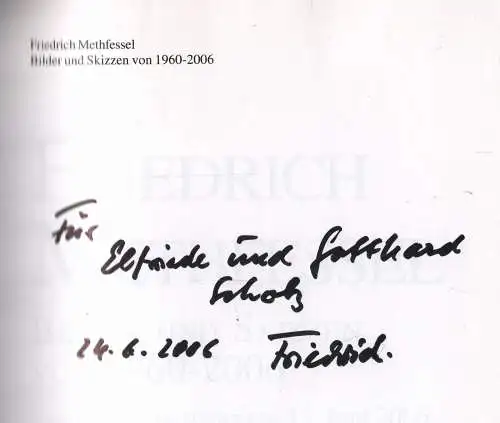 Friedrich Methfessel
Bilder und Skizzen von 1960-2006
EDRICH
Für
Elfriede und Gotthard
Scholz
24.6.2006 Friedrich.